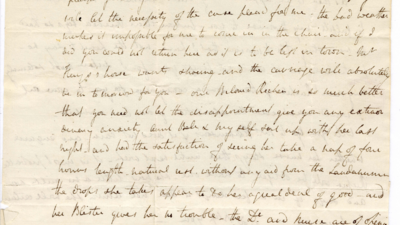 let the necessity of the cause plead for me - the bad weather
makes it impossible for me to come in in the Chair and if I
did you could not return here as I is to be left in town, but
horse wants shoeing and the carriage will absolutely
be in tomorrow for you - our beloved is so much better
that you need not let the disappointment give you any extraor
dinary anxiety, and my self set up with her last
night, and had the satisfaction of seeing her take a nap of four
hours length, natural rest, without any aid from the Laudanum
the drops she takes appear to do her a great deal of good - and
her Blister gives her no trouble - the Dr. and Nurse are of